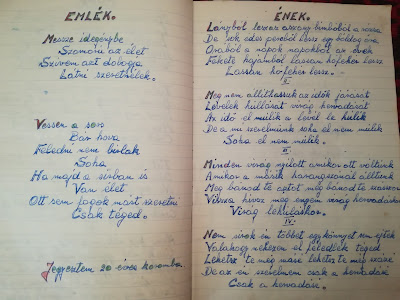 EMLÉK.
Messze idegenybe
Szomorú az élet
Szívem azt dobogja
Látni szeretnélek.
Vessen a sors
Bár hova
Feledni nem birlak
Soha
Ha majd a sirban is
Van élet
Ott sem fogok mást szeretni
Csak téged.
Jegyeztem 20 éves koromba.
ÉNEK.
Lányból leszen asszony bimbóból a rózsa
De sok édes percből lesz egy boldog óra
Órából a napok napokból az évek
Fekete hajamból lassan hófehér lesz
Lassan hófehér lesz.
II
Meg nem állithassuk az idők járását
Levelek hullását virág hervadását
Az idő el múlik a levél le hullik
De a mi szerelmünk soha el nem múlik
Soha el nem múlik.
III
Minden virág nyilott amikor ott voltunk
Amikor a másik harangszónál álltunk
Meg bánod te aztot még bánod te százszor
Vissza hívsz még engem virág hervadáskor
Virág
IV
Nem sirok én többet egy könnyet sem ejtek
Valahogy nehezen el feledlek téged
Lehetsz te még másé lehetsz te még százé
De az én szerelmem csak a hervadásé
Csak a hervadásé.